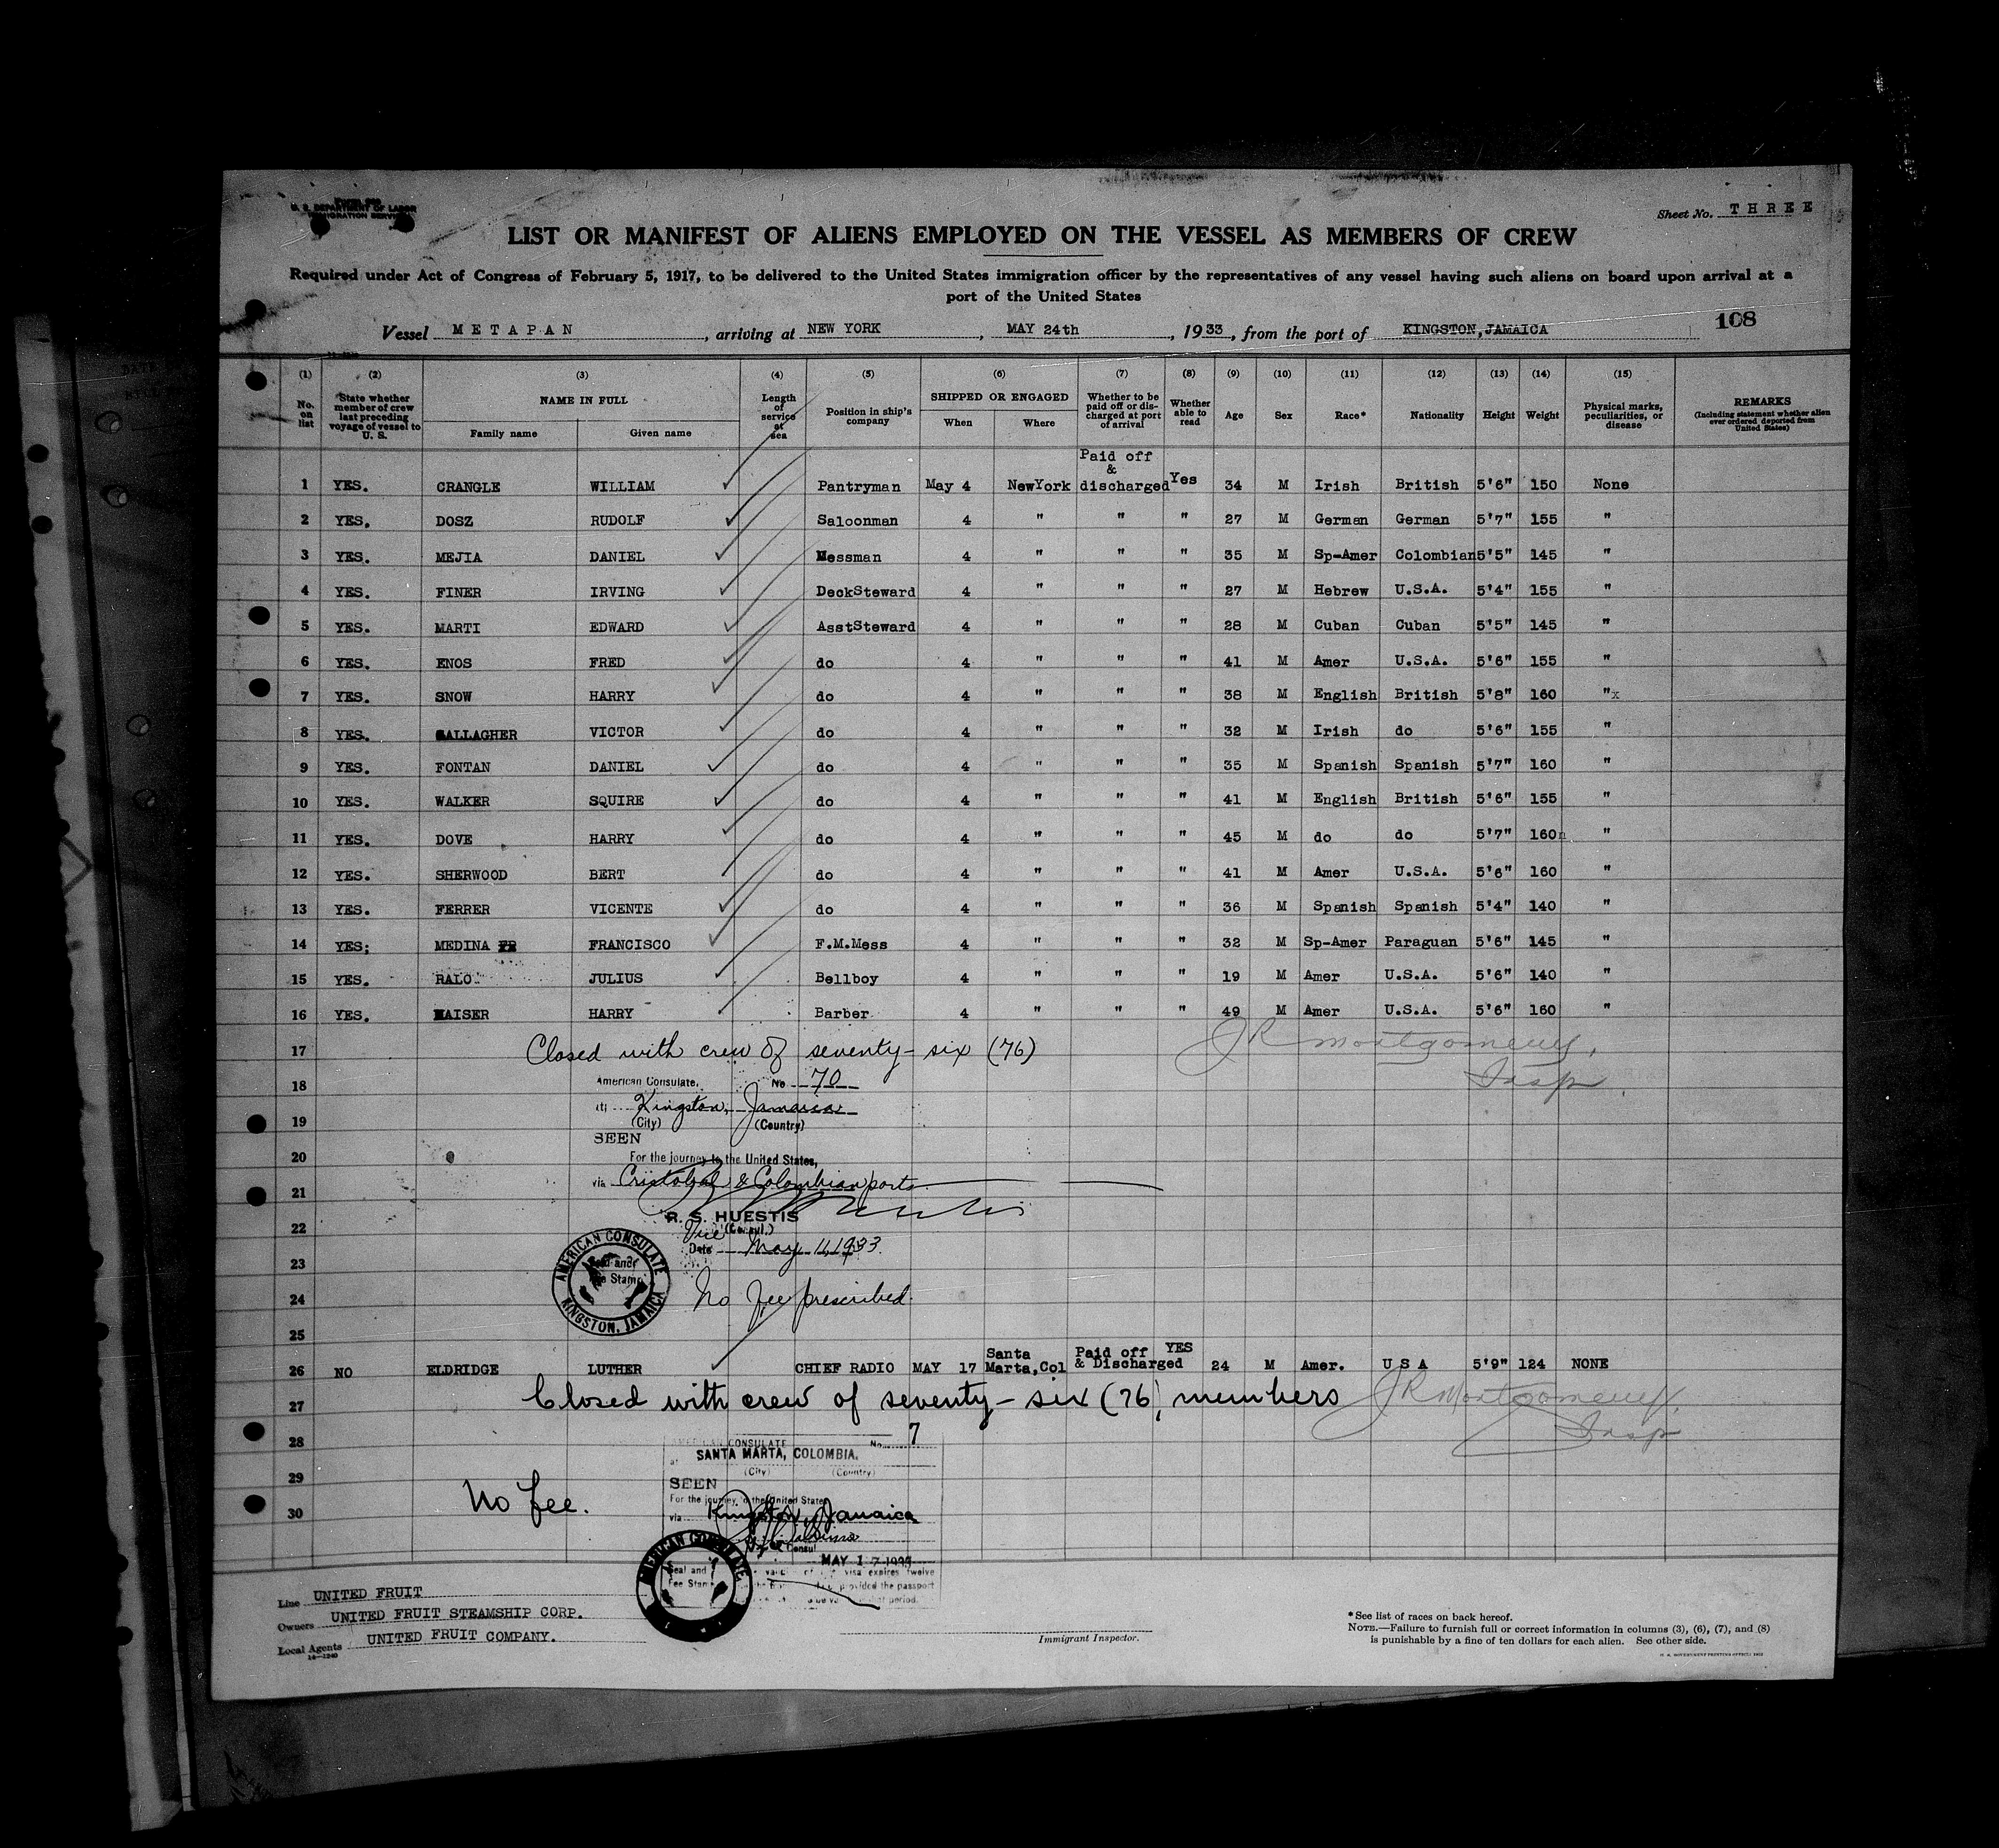 Form 680
U. S. DEPARTMENT OF LABOR
IMMIGRATION SERVICE
Sheet No. THREE
LIST OR MANIFEST OF ALIENS EMPLOYED ON THE VESSEL AS MEMBERS OF CREW
Required under Act of Congress of February 5, 1917, to be delivered to the United States immigration officer by the representatives of any vessel having such aliens on board upon arrival at a
port of the United States
Vessel METAPAN, arriving at NEW YORK, MAY 24th, 1933, from the port of KINGSTON, JAMAICA 108
(1) No. on list (2) State whether member of crew last preceding voyage of vessel to U. S. (3) NAME IN FULL Family name Given name (4) Length of service at sea (5) Position in ship's company (6) SHIPPED OR ENGAGED When Where (7) Whether to be paid off or discharged at port of arrival (8) Whether able to read (9) Age (10) Sex (11) Race* (12) Nationality (13) Height (14) Weight (15) Physical marks, peculiarities, or disease REMARKS (Including statement whether alien ever ordered deported from United States)
1 YES. CRANGLE WILLIAM Pantryman May 4 NewYork Paid off & discharged Yes 34 M Irish British 5'6" 150 None
2 YES. DOSZ RUDOLF Saloonman 4 " " " 27 M German German 5'7" 155 "
3 YES. MEJIA DANIEL Messman 4 " " " 35 M Sp-Amer Colombian 5'5" 145 "
4 YES. FINER IRVING DeckSteward 4 " " " 27 M Hebrew U.S.A. 5'4" 155 "
5 YES. MARTI EDWARD AsstSteward 4 " " " 28 M Cuban Cuban 5'5" 145 "
6 YES. ENOS FRED do 4 " " " 41 M Amer U.S.A. 5'6" 155 "
7 YES. SNOW HARRY do 4 " " " 38 M English British 5'8" 160 "x
8 YES. GALLAGHER VICTOR do 4 " " " 32 M Irish do 5'6" 155 "
9 YES. FONTAN DANIEL do 4 " " " 35 M Spanish Spanish 5'7" 160 "
10 YES. WALKER SQUIRE do 4 " " " 41 M English British 5'6" 155 "
11 YES. DOVE HARRY do 4 " " " 45 M do do 5'7" 160 "
12 YES. SHERWOOD BERT do 4 " " " 41 M Amer U.S.A. 5'6" 160 "
13 YES. FERRER VICENTE do 4 " " " 36 M Spanish Spanish 5'4" 140 "
14 YES; MEDINA FRANCISCO F.M.Mess 4 " " " 32 M Sp-Amer Paraguan 5'6" 145 "
15 YES. RALO JULIUS Bellboy 4 " " " 19 M Amer U.S.A. 5'6" 140 "
16 YES. KAISER HARRY Barber 4 " " " 49 M Amer U.S.A. 5'6" 160 "
17 Closed with crew of seventy-six (76) J R Montgomery,
18 American Consulate, No 70 Insp
19 at Kingston, Jamaica
(City) (Country)
SEEN
20 For the journey to the United States,
21 via Cristobal & Colombian ports
R. S. HUESTIS
22 Vice (Consul.)
Date May 11, 1933.
23
AMERICAN CONSULATE KINGSTON, JAMAICA
Seal and Fee Stamp
24 No fee prescribed.
25
26 NO ELDRIDGE LUTHER CHIEF RADIO MAY 17 Santa Marta,Col Paid off & Discharged YES 24 M Amer. U S A 5'9" 124 NONE
27 Closed with crew of seventy-six (76) members J R Montgomery,
Insp
28 AMERICAN CONSULATE No. 7
at SANTA MARTA, COLOMBIA.
(City) (Country)
29 SEEN
No fee.
For the journey to the United States
30 via Kingston, Jamaica
Vice Consul
MAY 17 1933
AMERICAN CONSULATE
Seal and Fee Stamp
visa expires twelve
provided the passport
period.
Line UNITED FRUIT
Owners UNITED FRUIT STEAMSHIP CORP.
Local Agents UNITED FRUIT COMPANY.
14—1240
Immigrant Inspector.
*See list of races on back hereof.
NOTE.—Failure to furnish full or correct information in columns (3), (6), (7), and (8)
is punishable by a fine of ten dollars for each alien. See other side.